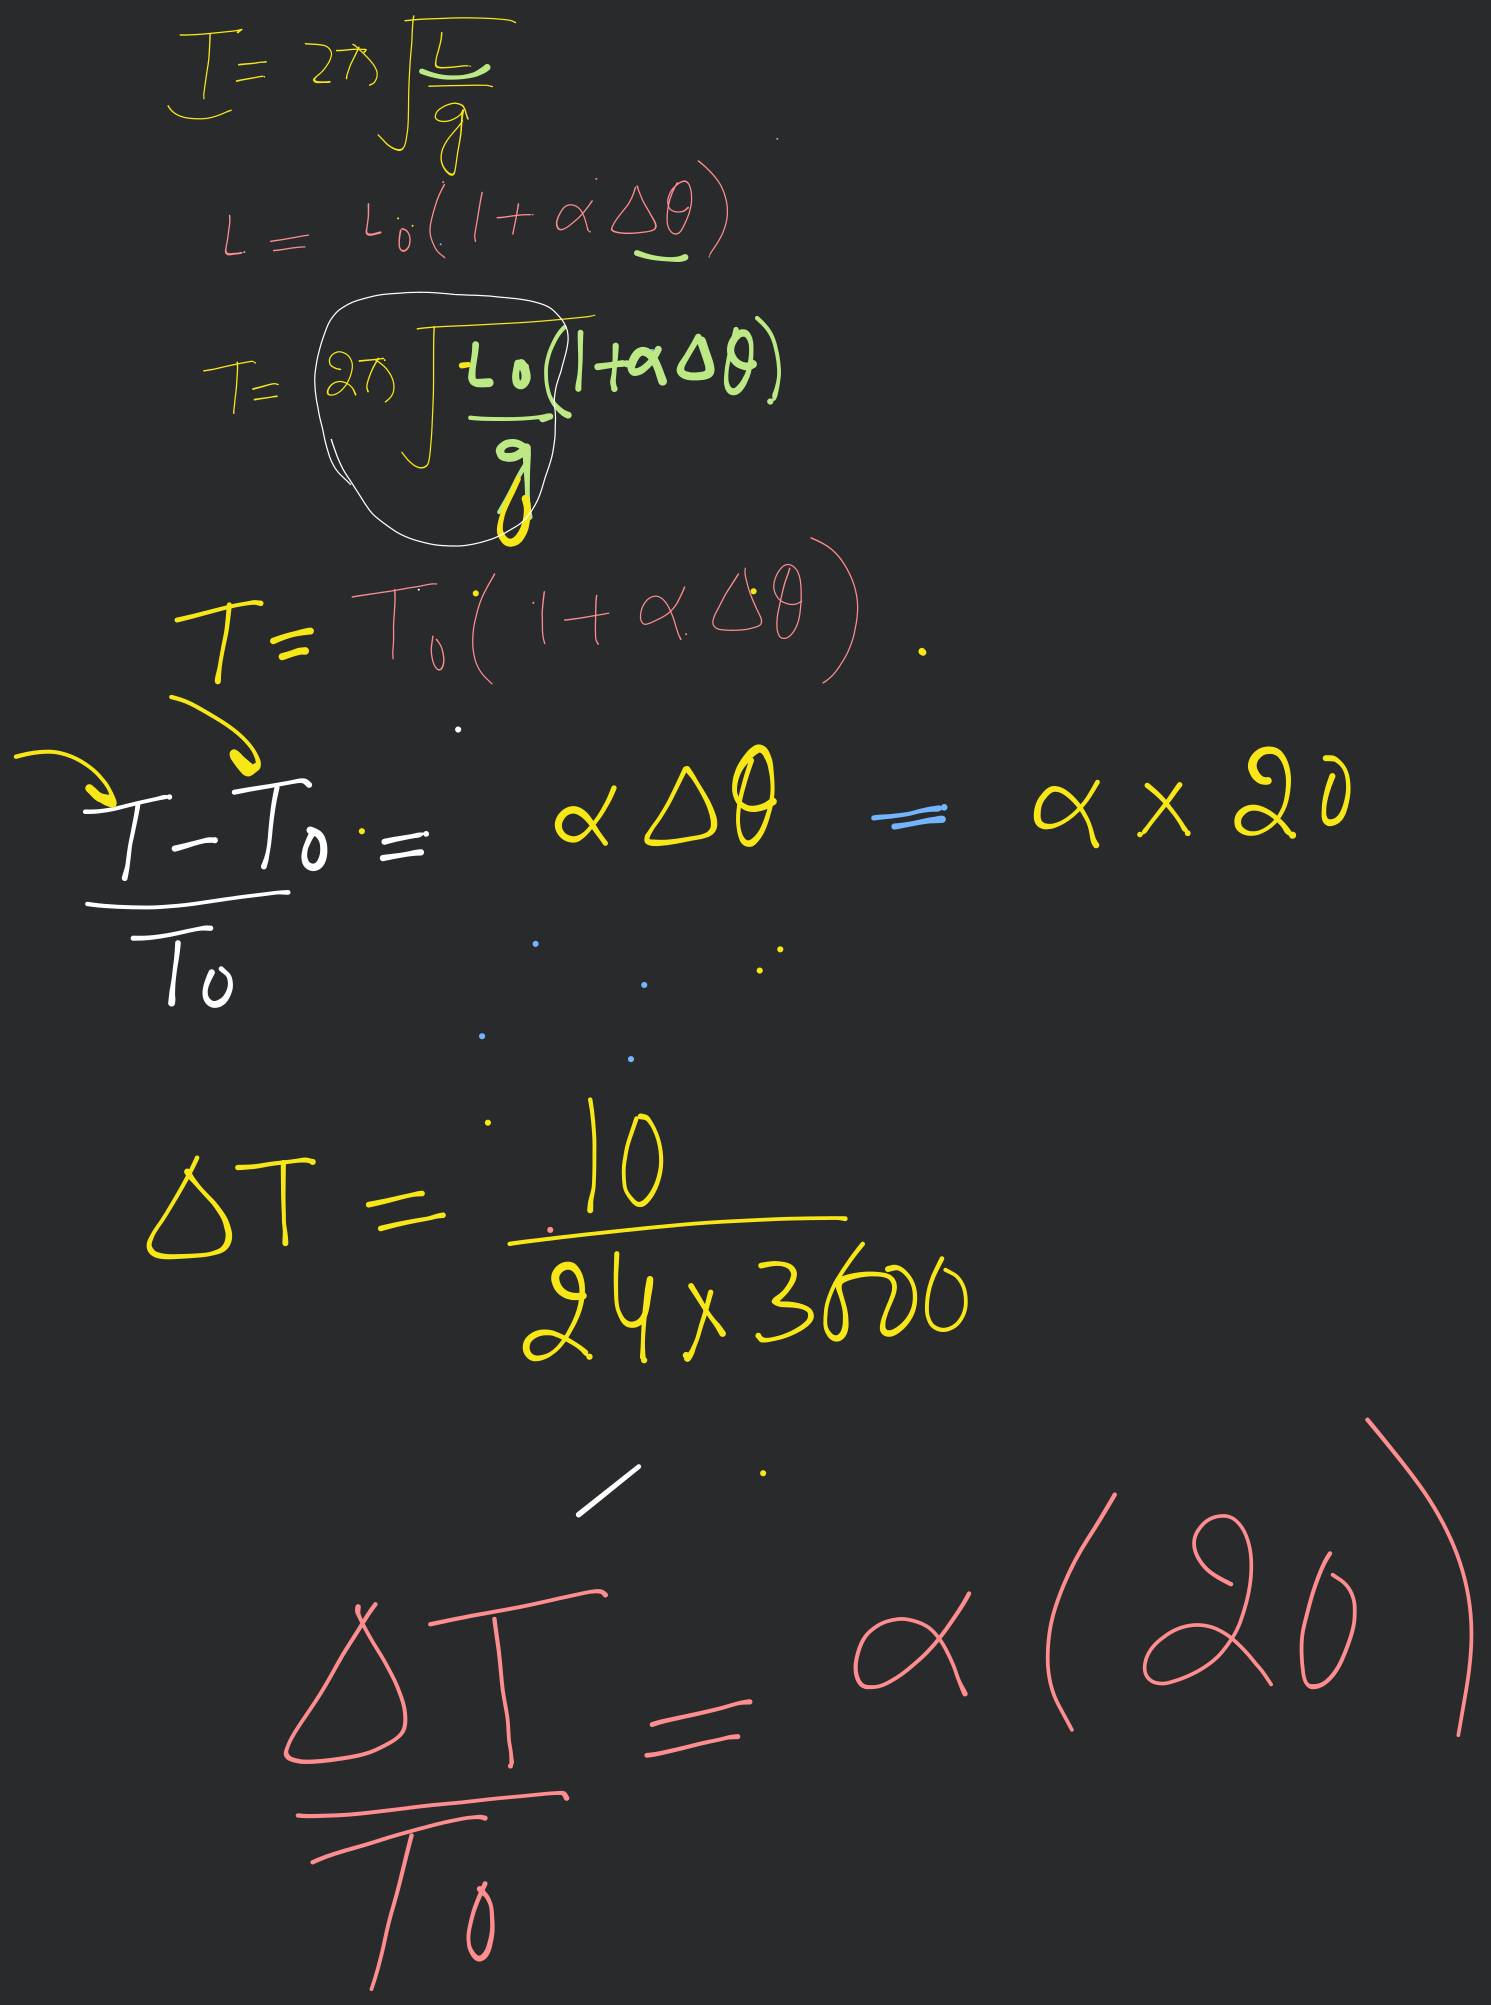 T = 2π √(L/g)
L = L₀(1 + αΔθ)
T = 2π √(L₀(1+αΔθ)/g)
T = T₀(1 + αΔθ)
(T - T₀)/T₀ = αΔθ = α × 20
ΔT = 10/(24 × 3600)
ΔT/T₀ = α(20)